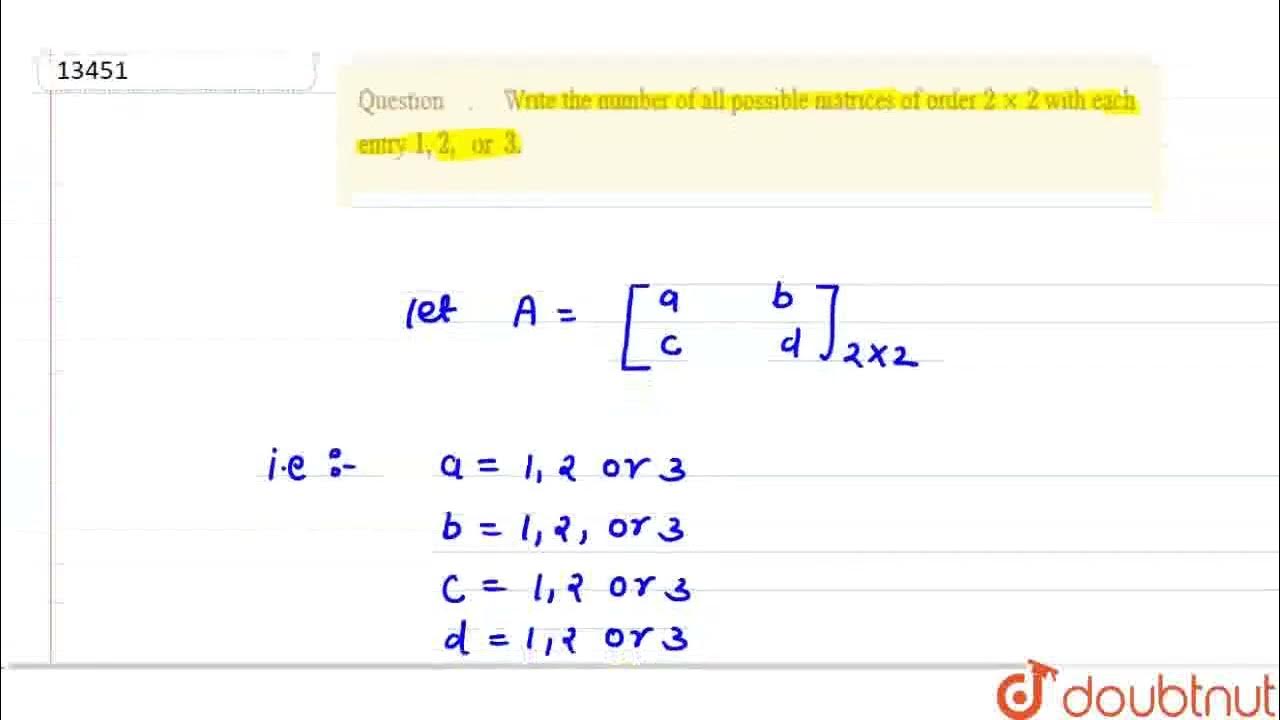 13451
Question . Write the number of all possible matrices of order 2 × 2 with each
entry 1, 2, or 3.
let A = [ a b
c d ] 2×2
i.e :- a = 1, 2 or 3
b = 1, 2, or 3
c = 1, 2 or 3
d = 1, 2 or 3
doubtnut